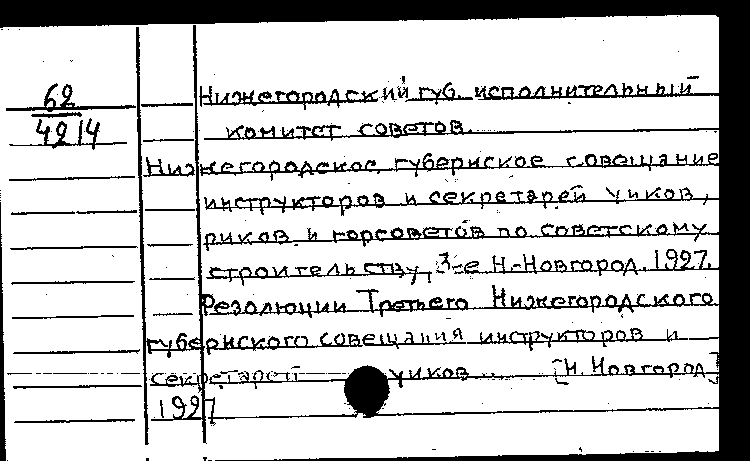 62
4214
Нижегородский губ. исполнительный
комитет советов.
Нижегородское губернское совещание
инструкторов и секретарей уиков,
риков и горсоветов по советскому
строительству, 3-е Н-Новгород. 1927.
Резолюции Третьего Нижегородского
губернского совещания инструкторов и
секретарей уиков... [Н. Новгород]
1927